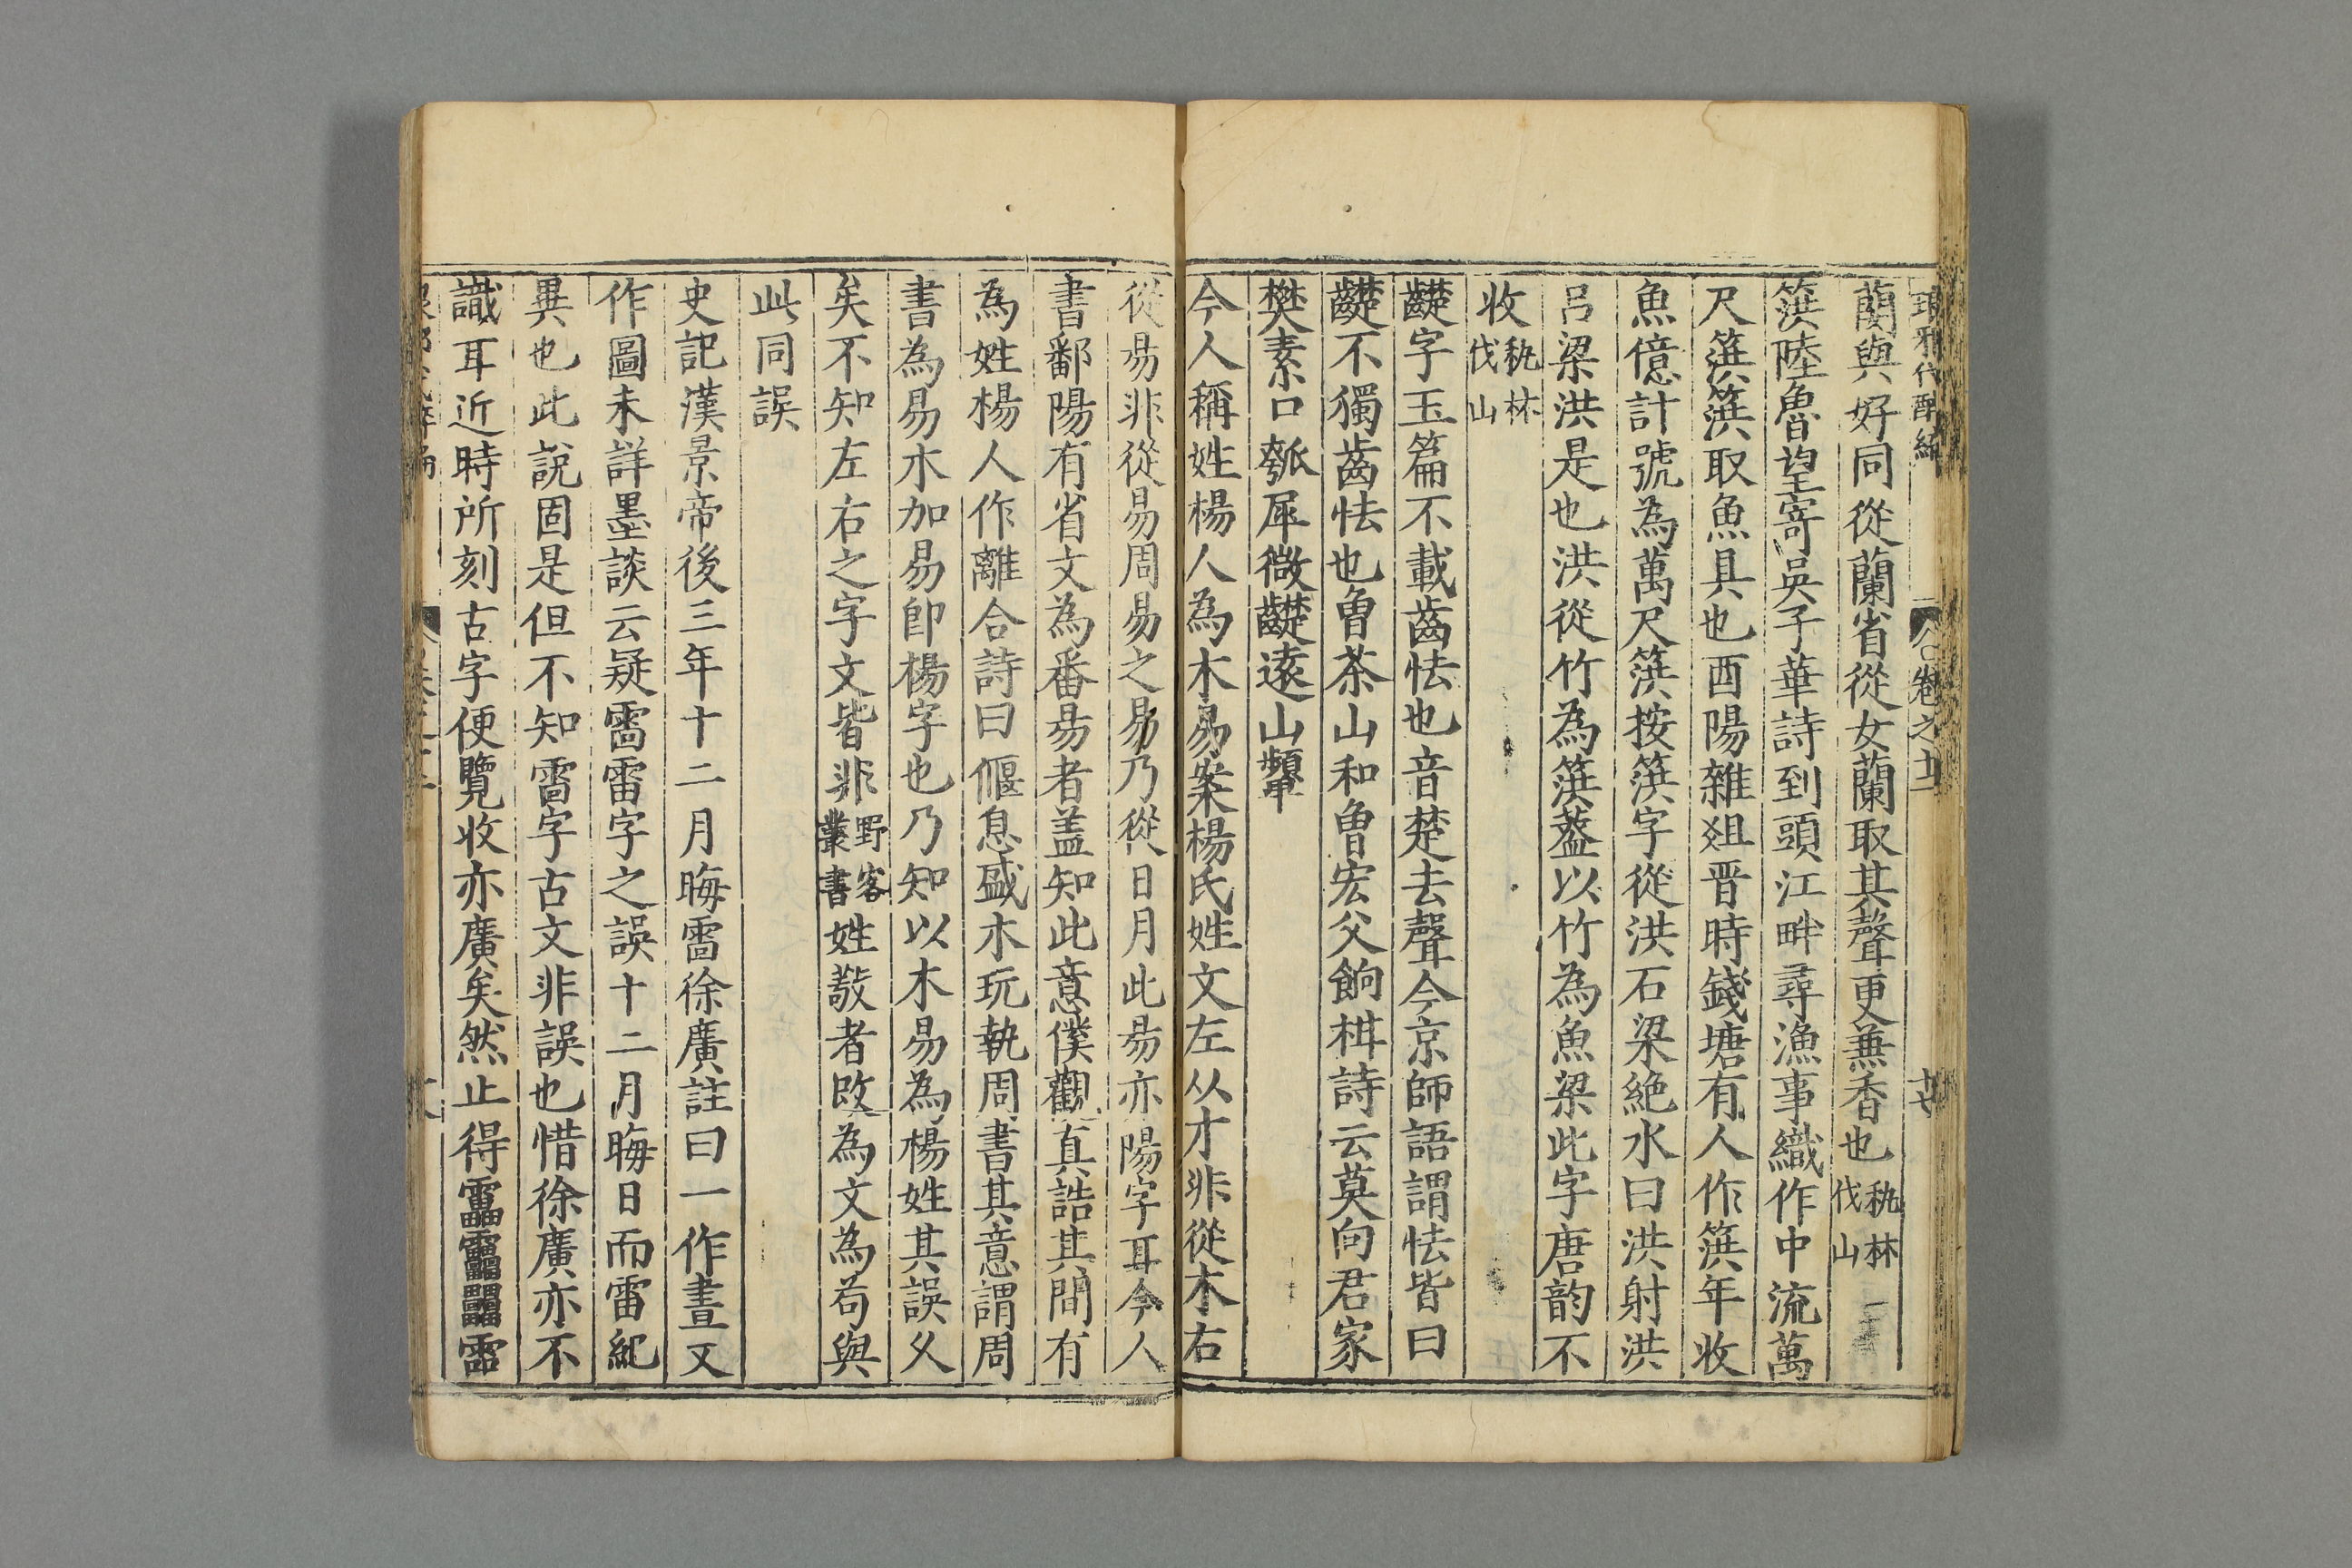 琅邪代醉編 卷之十一
蘭與好同從蘭省從女蘭取其聲更兼香也秇林伐山
篊陸魯望寄吳子華詩到頭江畔尋漁事織作中流萬
尺篊篊取魚具也酉陽雜爼晋時錢塘有人作篊年收
魚億計號為萬尺篊按篊字從洪石梁絶水曰洪射洪
呂梁洪是也洪從竹為篊葢以竹為魚梁此字唐韵不
收秇林伐山
齼字玉篇不載齒怯也音楚去聲今京師語謂怯皆曰
齼不獨齒怯也曾茶山和曾宏父餉柑詩云莫向君家
樊素口瓠犀微齼遠山顰
今人稱姓楊人為木昜案楊氏姓文左从才非從木右
從昜非從易周易之易乃從日月此昜亦陽字耳今人
書鄱陽有省文為番昜者盖知此意僕觀真誥其間有
為姓楊人作離合詩曰偃息盛木玩執周書其意謂周
書為易木加易即楊字也乃知以木易為楊姓其誤久
矣不知左右之字文皆非野客叢書姓敬者改為文為苟與
此同誤
史記漢景帝後三年十二月晦靁徐廣註曰一作晝又
作圖未詳墨談云疑靁雷字之誤十二月晦日而雷紀
異也此說固是但不知靁字古文非誤也惜徐廣亦不
識耳近時所刻古字便覽收亦廣矣然止得靁